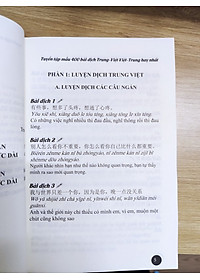 Tuyển tập mẫu 400 bài dịch Trung-Việt Việt-Trung hay nhất
PHẦN 1: LUYỆN DỊCH TRUNG VIỆT
A. LUYỆN DỊCH CÁC CÂU NGẮN
Bài dịch 1
有些事，想多了头疼，想通了心疼。
Yǒu xiē shì, xiǎng duō le tóu téng, xiǎng tōng le xīn téng.
Có những việc nghĩ nhiều thì đau đầu, nghĩ thông rồi thì đau lòng.
Bài dịch 2
别人怎么看你不重要，你怎么看你自己过还什么都重要。
Biérén zěnme kàn nǐ bú zhòngyào, nǐ zěnme kàn nǐ zìjǐ bǐ shénme dōu zhòngyào.
Người khác nhìn bạn như thế nào không quan trọng, bạn tự thấy mình ra sao mới quan trọng.
Bài dịch 3
我与世界只差一个你，因为是你，晚一点没关系
Wǒ yǔ shìjiè zhǐ chà yīgè nǐ, yīnwèi shì nǐ, wǎn yīdiǎn méi guānxì
Anh và thế giới này chỉ thiếu có mình em, vì em, muộn một chút cũng không sao